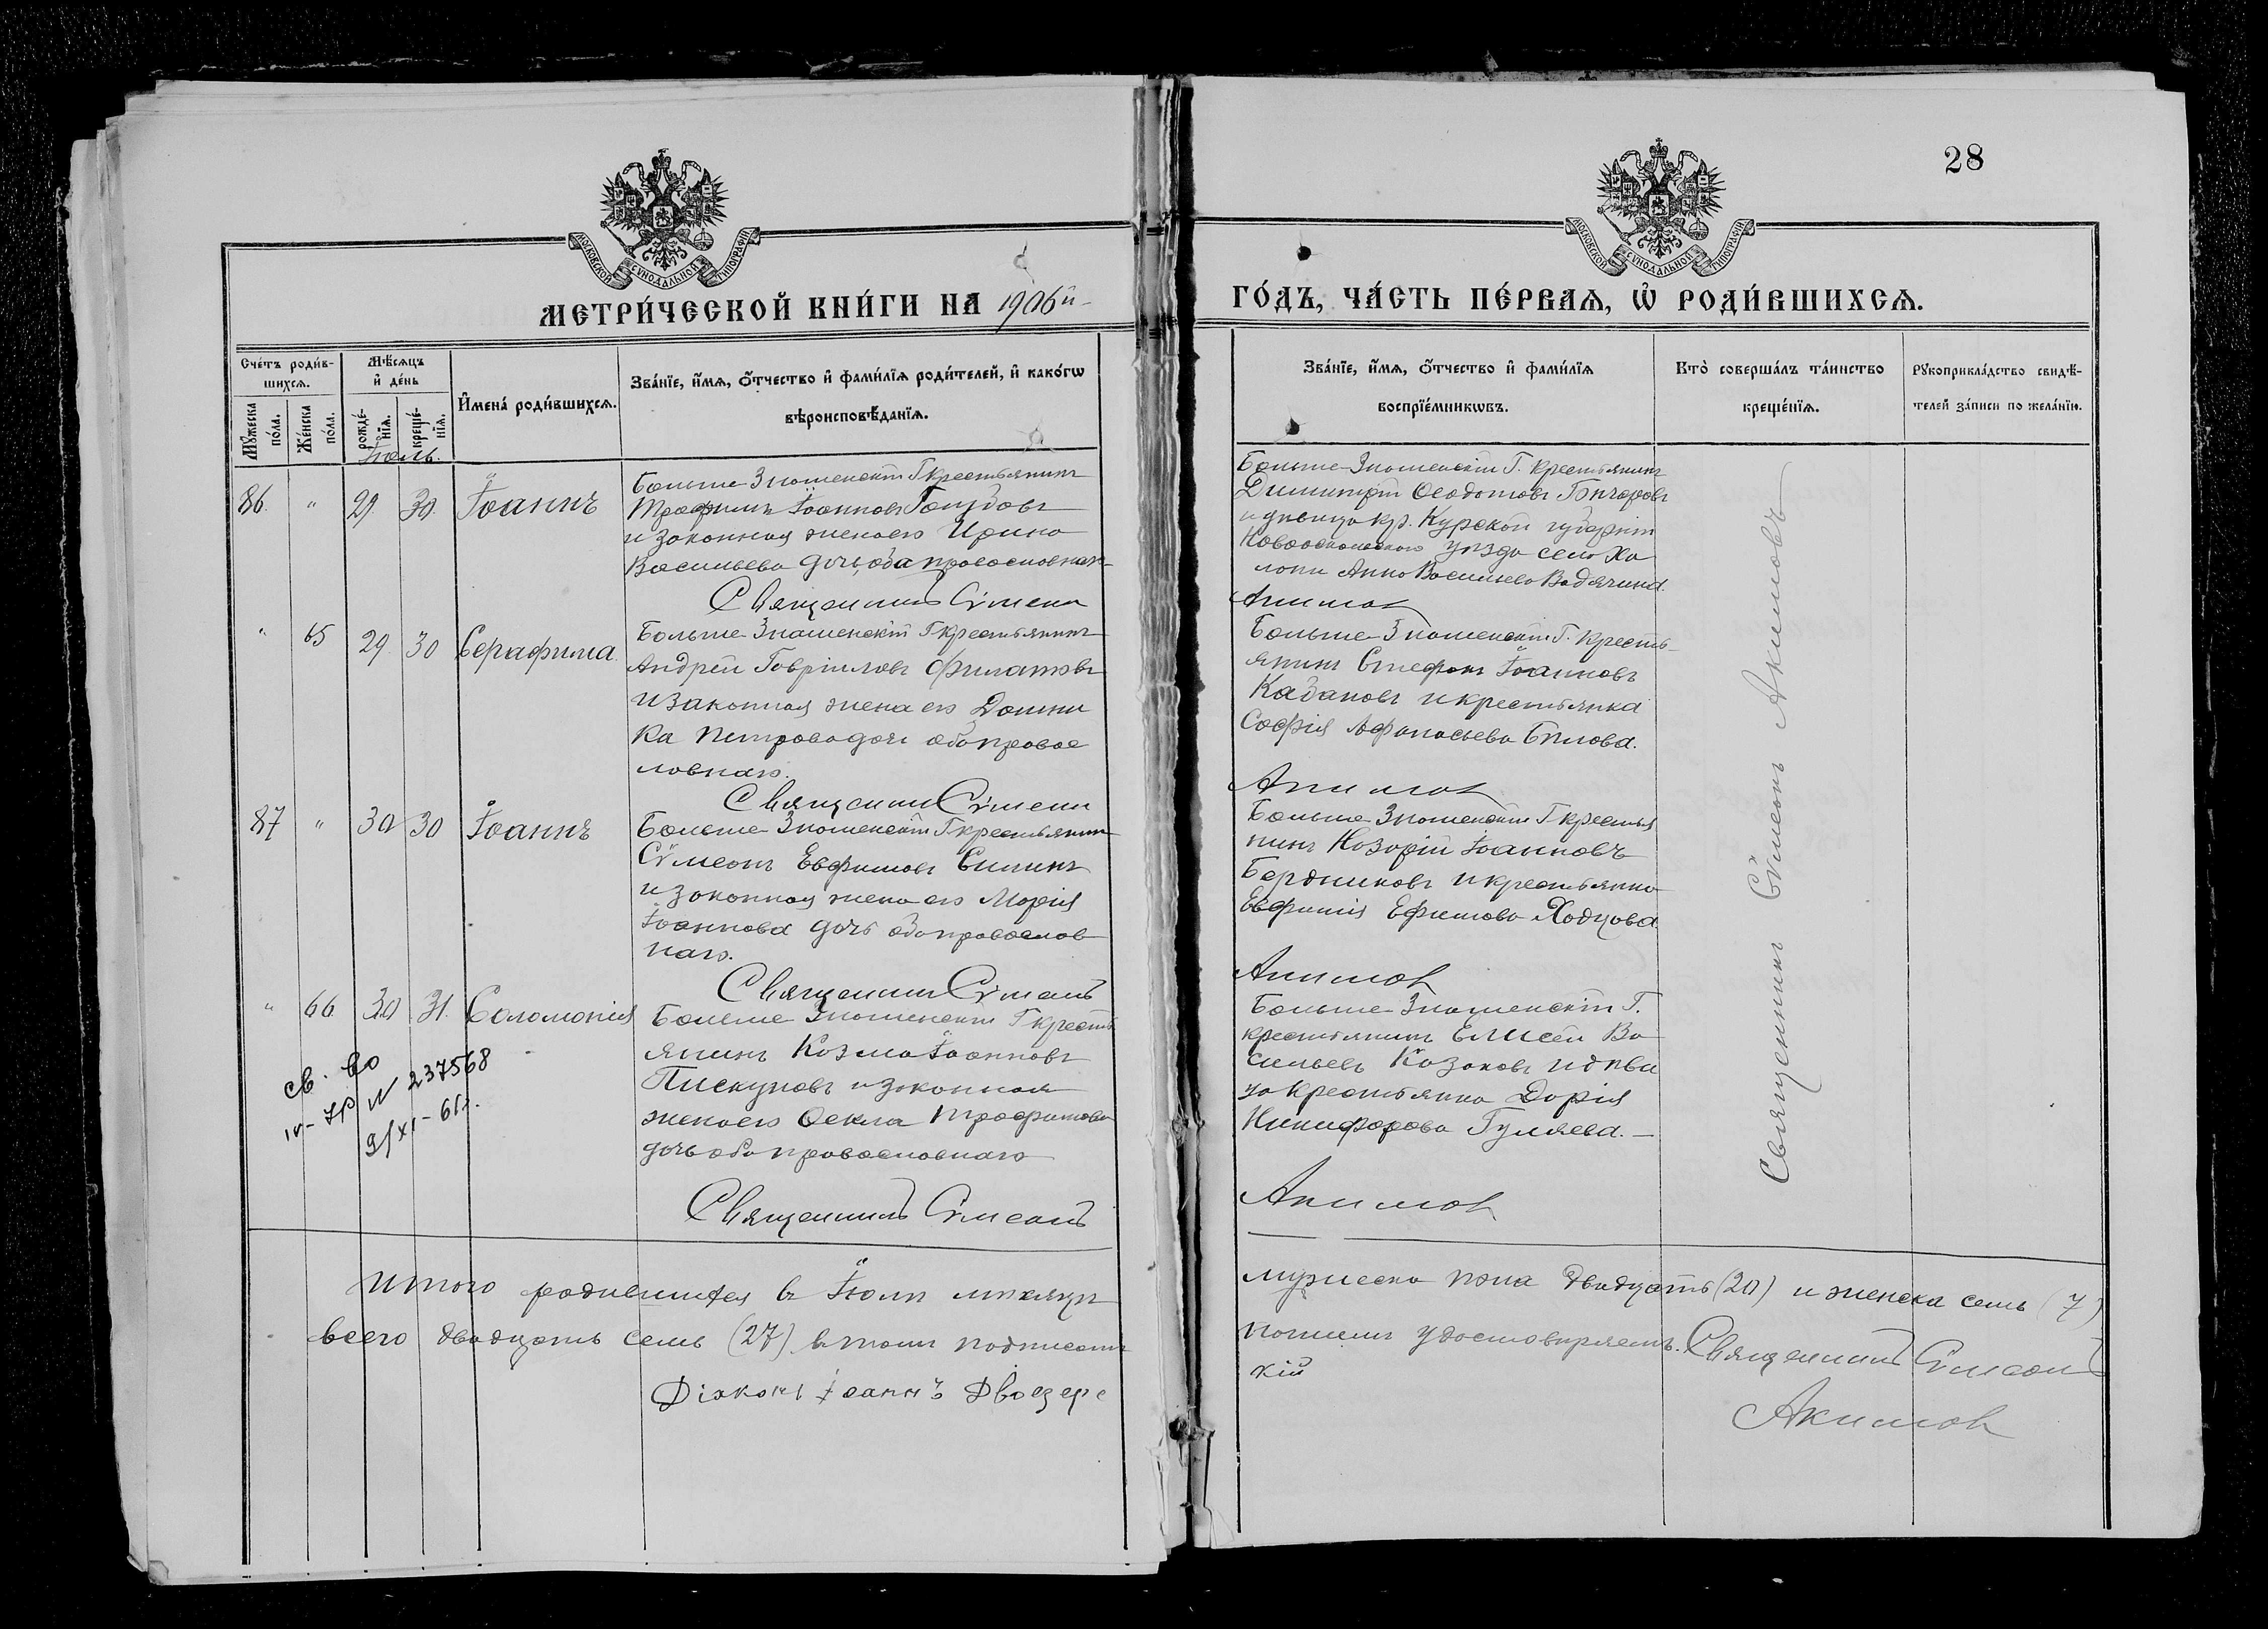 28
МОСКОВСКОЙ СѴНОДАЛЬНОЙ ТИПОГРАФІИ
МОСКОВСКОЙ СѴНОДАЛЬНОЙ ТИПОГРАФІИ
МЕТРИ́ЧЕСКОЙ КНИ́ГИ НА 1906й
ГО́ДЪ, ЧА́СТЬ ПЕ́РВАЯ, Ѡ РОДИ́ВШИХСЯ.
Сче́тъ роди́в-
шихся.
Мѣ́сяцъ
и де́нь
Имена́ роди́вшихся.
Зва́нїе, и́мя, о́тчество и фами́лїя роди́телей, и како́гѡ
вѣроисповѣ́данїя.
Му́жеска по́ла.
Же́нска по́ла.
рожде́-нїя.
креще́-нїя.
Зва́нїе, и́мя, о́тчество и фами́лїя
воспрїе́мникѡвъ.
Кто̀ соверша́лъ та́инство
креще́нїя.
Рꙋкоприкла́дство свидѣ́-
телей за́писи по жела́нїю.
Іюль.
86. " 29 30. Іоаннъ
Больше Знаменскій Г крестьянинъ
Трофимъ Іоанновъ
и законная жена его Ирина
Васильева дочь, оба православнаго
Священникъ Сѵмеонъ
Больше-Знаменскій Г. крестьянинъ
Димитрій Ѳеодотовъ Гончаровъ
и дѣвица кр. Курской губерніи
Новооскольскаго уѣзда села Ха
лани Анна Васильева
Акимов
" 65 29 30 Серафима.
Больше Знаменскій Г крестьянинъ
Андрей Гавріиловъ Филатовъ
и законная жена его Домни
ка Петрова дочь оба правос
лавнаго.
Священникъ Сѵмеонъ
Больше Знаменскій Г. кресть-
янинъ Стефанъ Іоанновъ
Кабановъ и крестьянка
Софія Афанасьева Бѣлова.
Акимов
87 " 30 30 Іоаннъ
Больше Знаменскій Г крестьянин
Сѵмеонъ Евфимовъ Силинъ
и законная жена его Марія
Іоаннова дочь оба православ
наго.
Священникъ Сѵмеонъ
Больше Знаменскій Г крестья
нинъ Назарій Іоанновъ
Бердниковъ и крестьянка
Евфимія Ефимова Ходусова
Акимов
" 66 30 31. Соломонія
Больше Знаменскій Г кресть
янинъ Козма Іоанновъ
Пискуновъ и законная
жена его Ѳекла Трофимова
дочь оба православнаго
Священникъ Сѵмеонъ
Больше Знаменскій Г.
крестьянинъ Елисей Ва
сильевъ Казаковъ и дѣви
ца крестьянка Дарія
Никифорова Гуляева.—
Акимов
св. во
N 237568
9/XI-61г.
Священникъ Сѵмеонъ Акимовъ
Итого родившихся в Іюлѣ мѣсяцѣ
мужеска пола двадцать (20) и женска семь (7)
всего двадцать семь (27) в томъ подписомъ
нашимъ удостовѣряемъ. Священникъ Сѵмеонъ
Акимов
Діаконъ Іоаннъ Двоезерс
кій